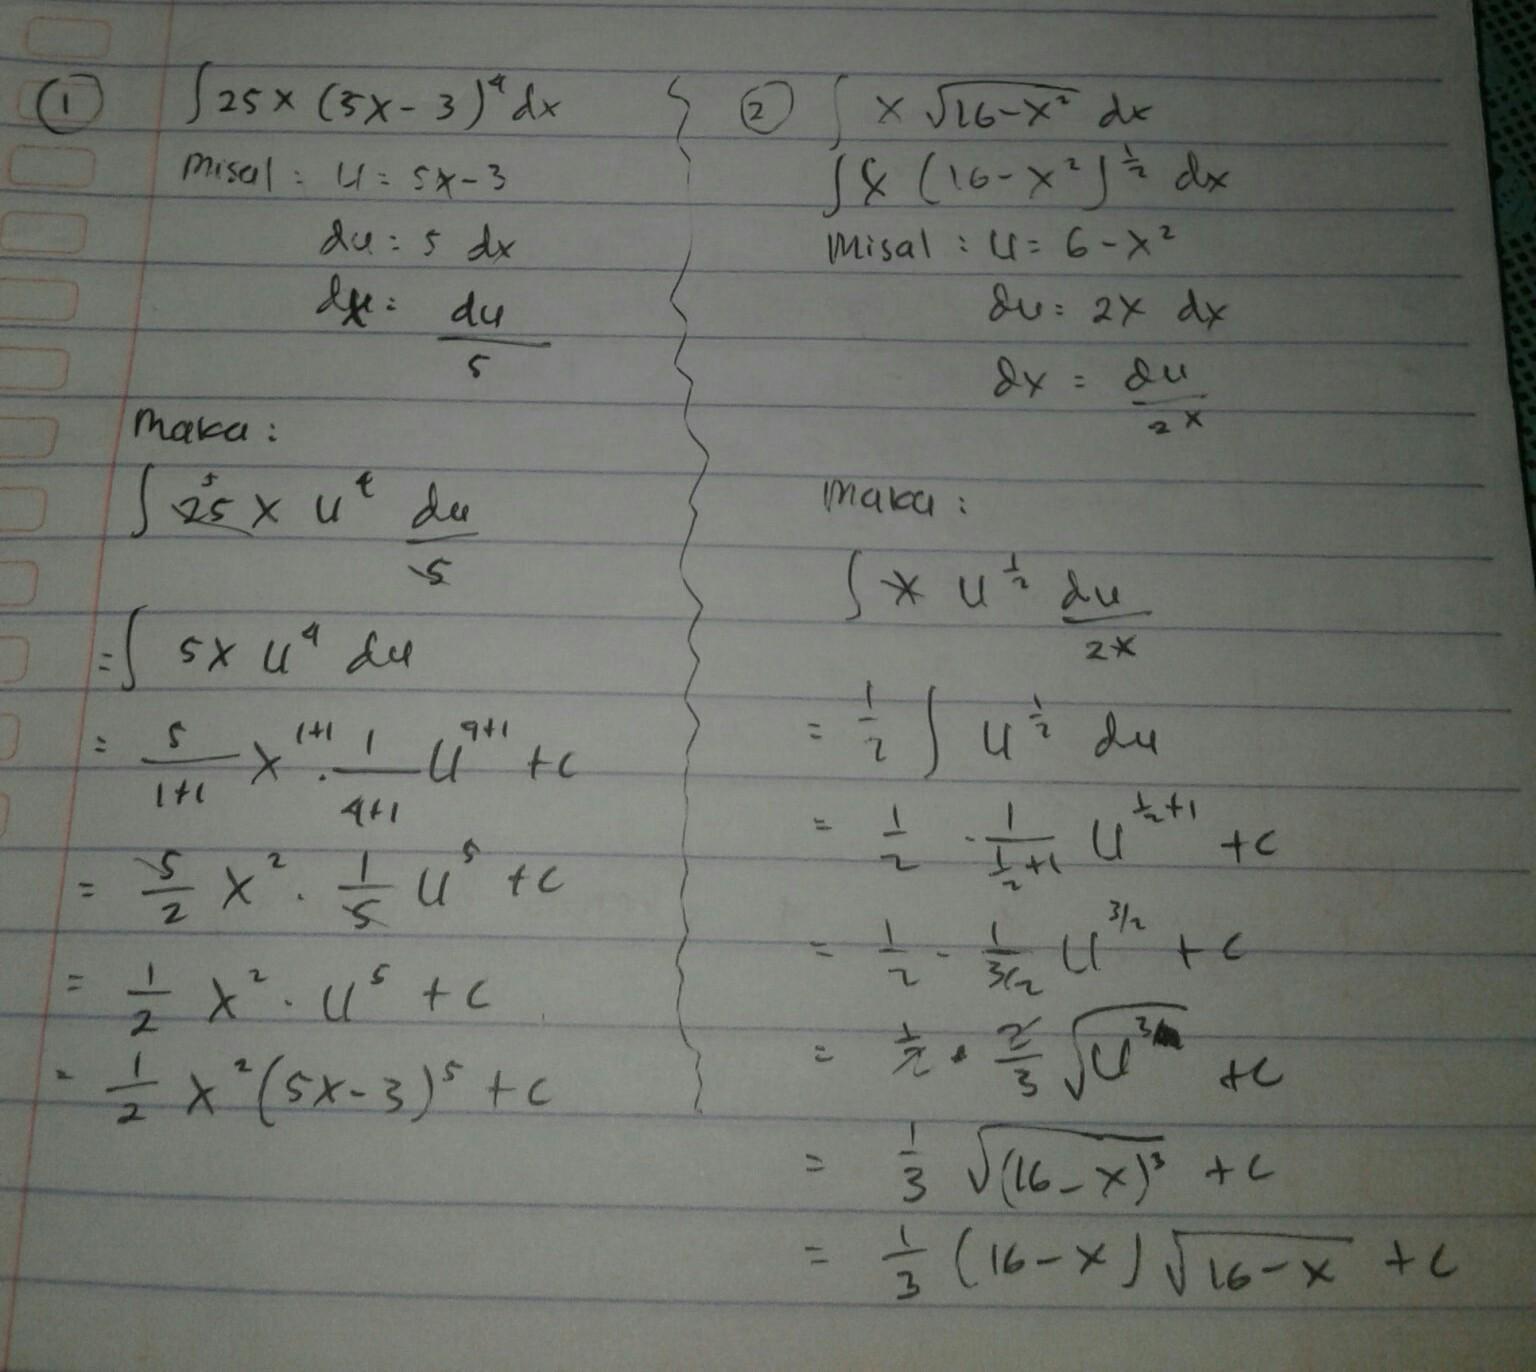 ① ∫ 25x (5x - 3)⁴ dx
Misal : u = 5x - 3
du = 5 dx
dx = du/5
Maka :
∫ 25 x u⁴ du/5
= ∫ 5x u⁴ du
= 5/(1+1) x¹⁺¹ . 1/(4+1) u⁴⁺¹ + c
= 5/2 x² . 1/5 u⁵ + c
= 1/2 x² . u⁵ + c
= 1/2 x² (5x - 3)⁵ + c
② ∫ x √(16 - x²) dx
∫ x (16 - x²)^(1/2) dx
Misal : u = 6 - x²
du = 2x dx
dx = du/2x
Maka :
∫ x u^(1/2) du/2x
= 1/2 ∫ u^(1/2) du
= 1/2 . 1/(1/2+1) u^(1/2+1) + c
= 1/2 . 1/(3/2) u^(3/2) + c
= 1/2 . 2/3 √(u³) + c
= 1/3 √((16 - x)³) + c
= 1/3 (16 - x) √(16 - x) + c